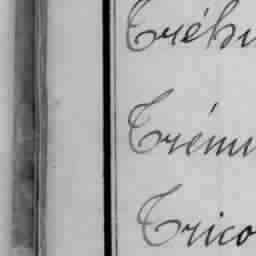 Tréhu
Trému
Trico